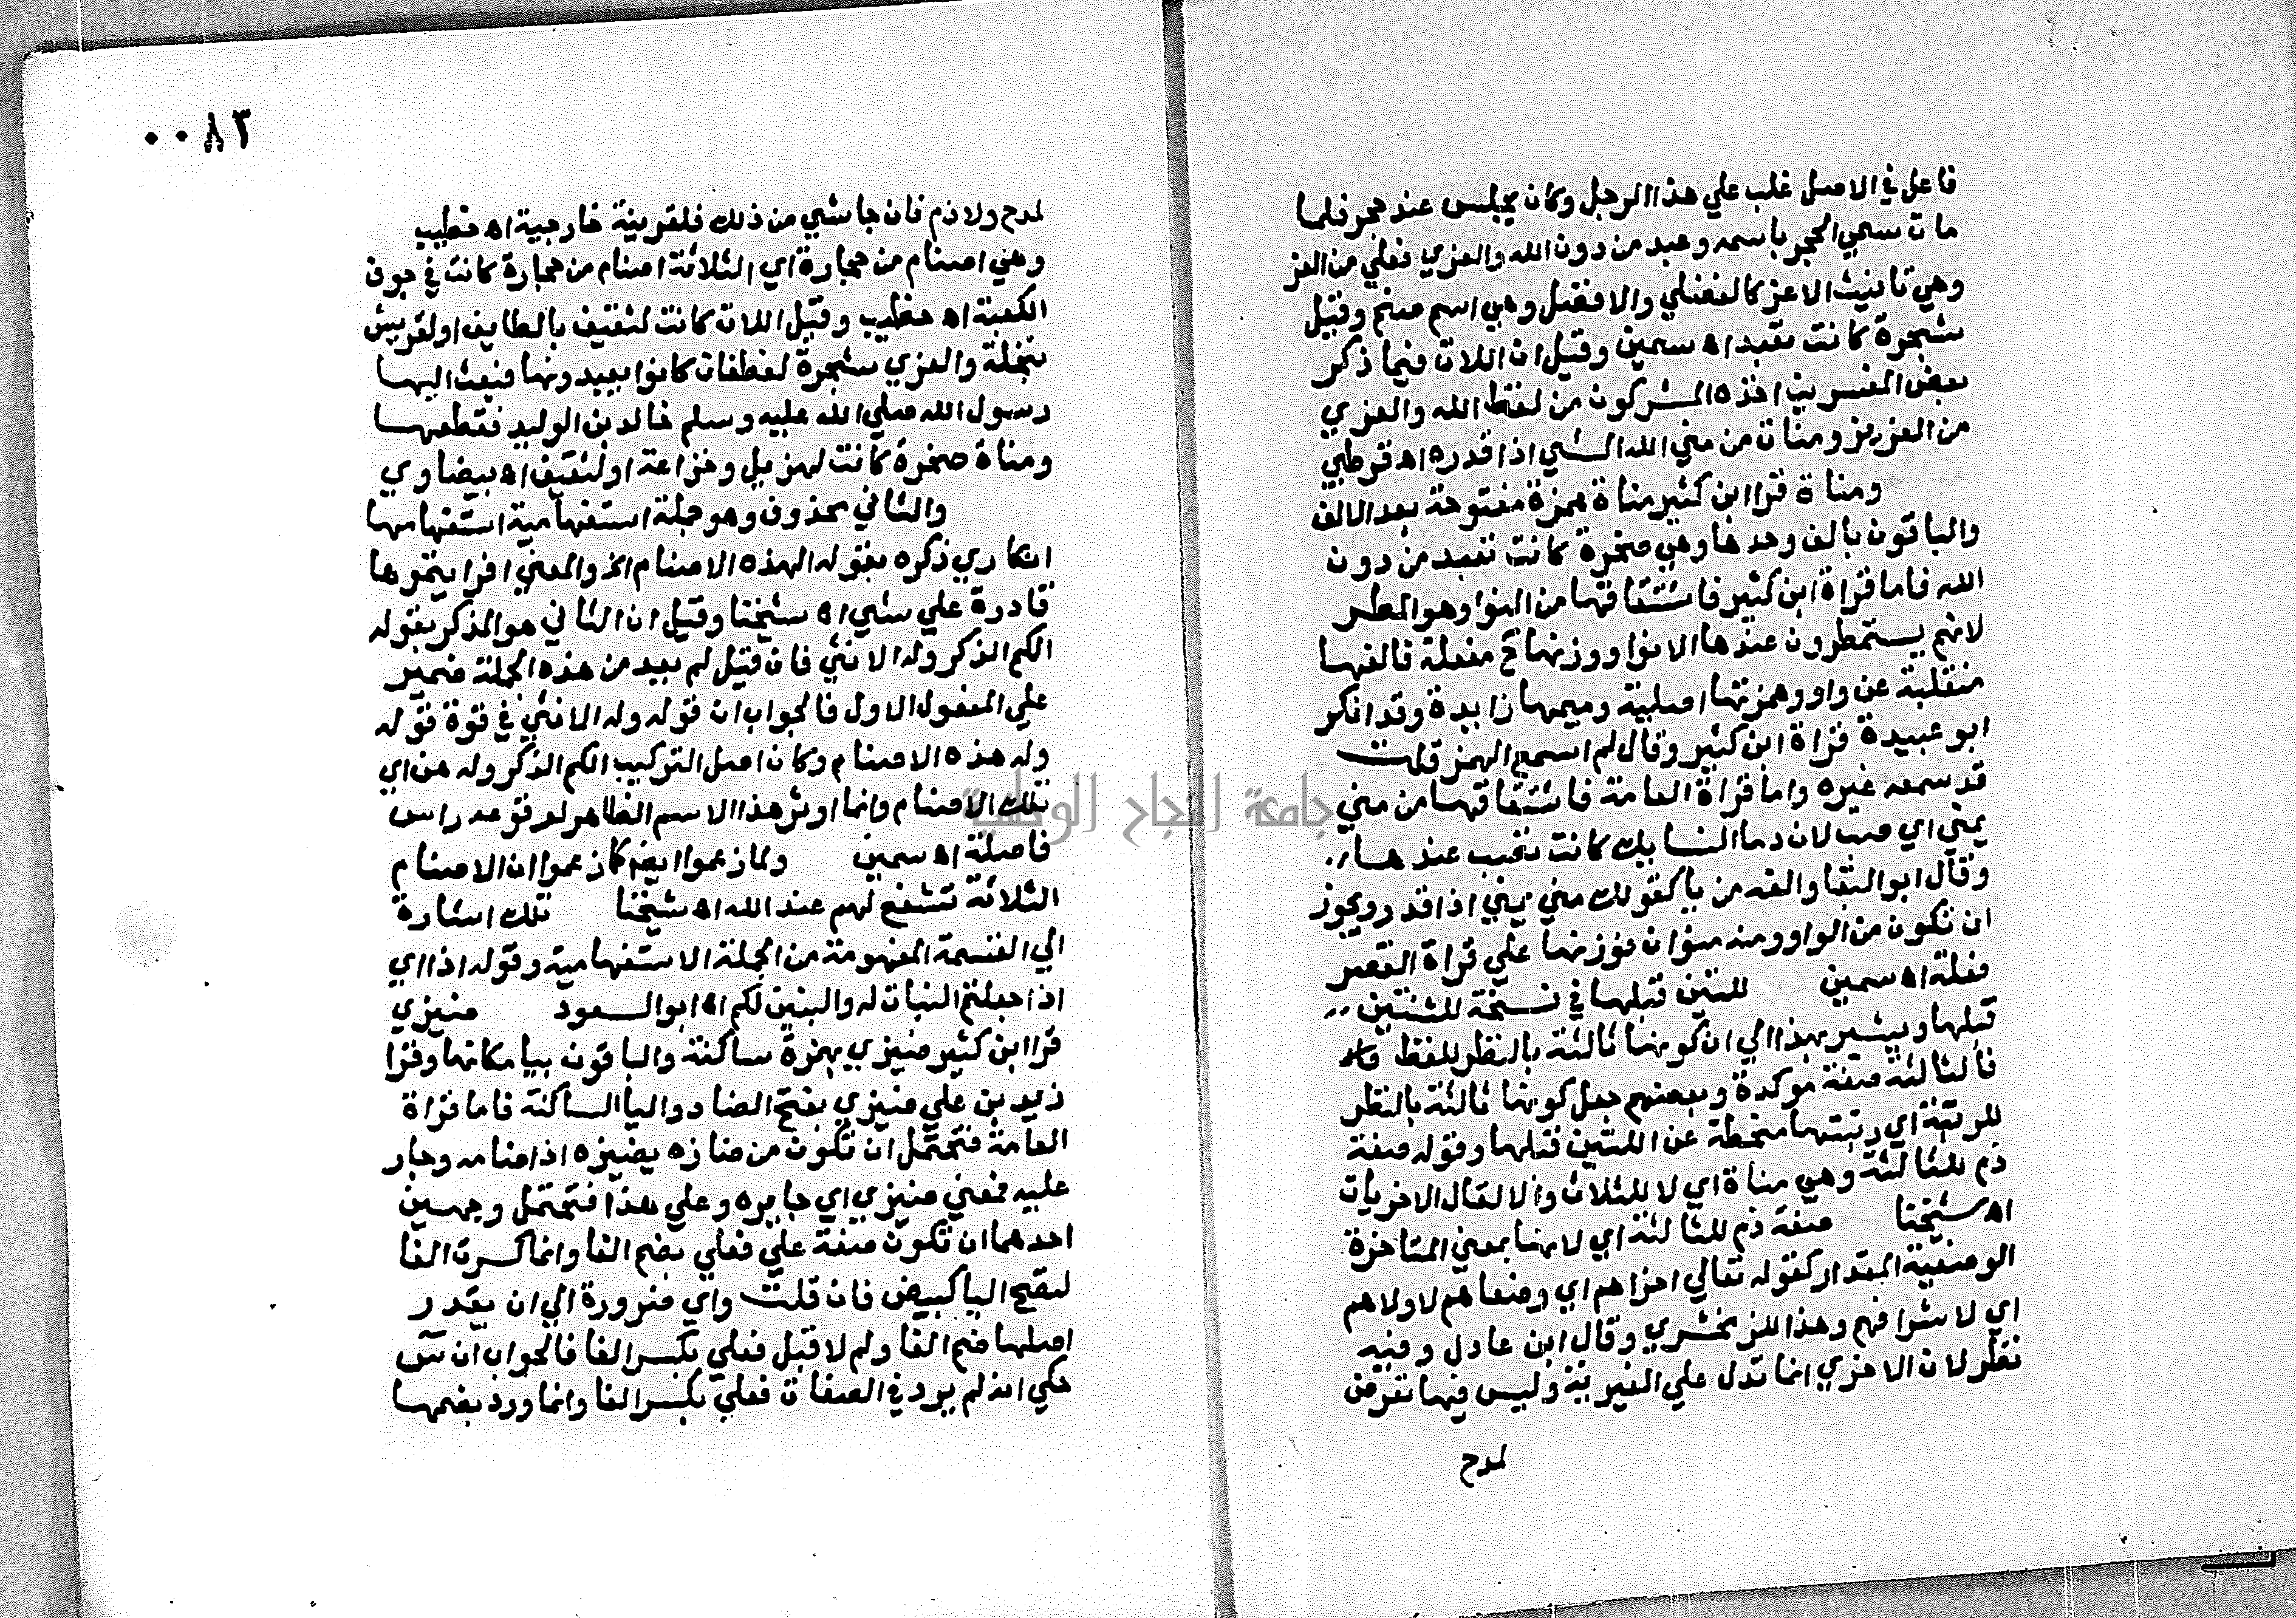 فاعل في الاصل غلب علي هذا الرجل وكان يجلس عند حجر فلما
مات سمي الحجر باسمه وعبد من دون الله والعزي فعلي من العز
وهي تانيث الاعز كالفضلي والافضل وهي اسم صنم وقيل
شجرة كانت تعبد اه سمين وقيل ان اللات فيما ذكر
بعض المفسرين اخذه المشركون من لفظ الله والعزي
من العزيز ومنات من مني الله الشي اذا قدره اه قرطبي
ومناة قرا ابن كثير مناة بهمزة مفتوحة بعد الالف
والباقون بالف وحدها وهي صخرة كانت تعبد من دون
الله فاما قراة ابن كثير فاشتقاقها من النوا وهو المطر
لانهم يستمطرون عندها الانوا ووزنها ح مفعلة فالفها
منقلبة عن واو وهمزتها اصلية وميمها زايدة وقد انكر
ابو عبيدة قراة ابن كثير وقال لم اسمع الهمز قلت
قد سمعه غيره واما قراة العامة فاشتقاقها من مني
يمني اي صب لان دما النسايك كانت تصب عندها
وقال ابو البقا والفه من يا كقولك مني يمني اذا قدر ويجوز
ان تكون من الواو ومنه منوان فوزنها علي قراة القصر
فعلة اه سمين للتين قبلها في نسخة للثنتين
قبلها ويشير بهذا الي ان كونها ثالثة بالنظر للفظ
فالثالثة صفة موكدة وبعضهم جعل كونها ثالثة بالنظر
للرتبة اي رتبتها منحطة عن اللتين قبلها وقوله صفة
ذم للثالثة وهي مناة اي لا للثلاث والا لقال الاخريات
اه شيخنا صفة ذم للثالثة اي لانها بمعني المتاخرة
الوضعية المقدار كقوله تعالي اخراهم اي وضعاهم لاولاهم
اي لاشرافهم وهذا للزمخشري وقال ابن عادل وفيه
نظر لان الاخري انما تدل علي الغيرية وليس فيها تعرض
لمدح
٠٠٨٣
لمدح ولا ذم فان جا شي من ذلك فلقرينة خارجية اه خطيب
وهي اصنام من حجارة اي الثلاثة اصنام من حجارة كانت في جوف
الكعبة اه خطيب وقيل اللات كانت لثقيف بالطايف او لقريش
بنخلة والعزي شجرة لغطفان كانوا يعبدونها فبعث اليها
رسول الله صلي الله عليه وسلم خالد بن الوليد فقطعها
ومناة صخرة كانت لهزيل وخزاعة او لثقيف اه بيضاوي
والثاني محذوف وهو جملة استفهامية استفهامها
انكاري ذكره بقوله الهذه الاصنام الخ والمعني افرايتموها
قادرة علي شي اه شيخنا وقيل ان الثاني هو المذكر بقوله
الكم الذكر وله الانثي فان قيل لم يعد من هذه الجملة ضمير
علي المفعول الاول فالجواب ان قوله وله الانثي في قوة قوله
وله هذه الاصنام وكان اصل التركيب الكم الذكر وله هن اي
تلك الاصنام وانما اوثر هذا الاسم الظاهر لوقوعه راس
فاصلة اه سمين ولما زعموا ايضم كما زعموا ان الاصنام
الثلاثة تشفع لهم عند الله اه شيخنا تلك اشارة
الي القسمة المفهومة من الجملة الاستفهامية وقوله اذا اي
اذا جعلتم البنات له والبنين لكم اه ابو السعود ضيزي
قرا ابن كثير ضيزي بهمزة ساكنة والباقون بيا مكانها وقرا
زيد بن علي ضيزي بفتح الضاد واليا الساكنة فاما قراة
العامة فتحتمل ان تكون من ضازه يضيزه اذا ضامه وجار
عليه فمعني ضيزي اي جايره وعلي هذا فتحتمل وجهين
احدهما ان تكون صفة علي فعلي بضم الفا وانما كسرت الفا
لتصح اليا كبيض فان قلت واي ضرورة الي ان يقدر
اصلها ضم الفا ولم لا قيل فعلي بكسر الفا فالجواب ان س
حكي انه لم يرد في الصفات فعلي بكسر الفا وانما ورد بضمها
جامعة النجاح الوطنية